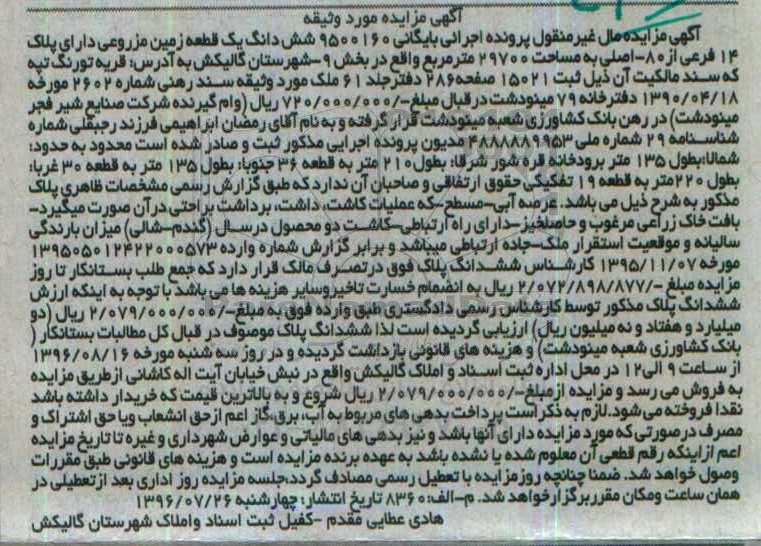 آگهی مزایده مورد وثیقه
آگهی مزایده مال غیر منقول پرونده اجرائی بایگانی ۹۵۰۰۱۶۰ شش دانگ یک قطعه زمین مزروعی دارای پلاک
۱۴ فرعی از ۸۰-اصلی به مساحت ۲۹۷۰۰ مترمربع واقع در بخش ۹-شهرستان گالیکش به آدرس: قریه تورنگ تپه
که سند مالکیت آن ذیل ثبت ۱۵۰۲۱ صفحه ۲۸۶ دفتر جلد ۶۱ ملک مورد وثیقه سند رهنی شماره ۲۶۰۲ مورخه
۱۳۹۰/۰۴/۱۸ دفترخانه ۷۹ مینودشت در قبال مبلغ-/۷۲۰/۰۰۰/۰۰۰ ریال (وام گیرنده شرکت صنایع شیر فجر
مینودشت) در رهن بانک کشاورزی شعبه مینودشت قرار گرفته و به نام آقای رمضان ابراهیمی فرزند رجبقلی شماره
شناسنامه ۲۹ شماره ملی ۴۸۸۸۸۸۹۹۵۳ مدیون پرونده اجرایی مذکور ثبت و صادر شده است محدود به حدود:
شمالا:بطول ۱۳۵ متر برودخانه قره شور شرقا: بطول ۲۱۰ متر به قطعه ۳۶ جنوبا: بطول ۱۳۵ متر به قطعه ۳۰ غربا:
بطول ۲۲۰متر به قطعه ۱۹ تفکیکی حقوق ارتفاقی و صاحبان آن ندارد که طبق گزارش رسمی مشخصات ظاهری پلاک
مذکور به شرح ذیل می باشد. عرصه آبی-مسطح-که عملیات کاشت، داشت، برداشت براحتی در آن صورت میگیرد-
بافت خاک زراعی مرغوب و حاصلخیز-دارای راه ارتباطی-کاشت دو محصول در سال (گندم-شالی) میزان بارندگی
سالیانه و موقعیت استقرار ملک-جاده ارتباطی میباشد و برابر گزارش شماره وارده ۱۳۹۵۰۵۰۱۲۴۲۲۰۰۰۵۷۳
مورخه ۱۳۹۵/۱۱/۰۷ کارشناس ششدانگ پلاک فوق در تصرف مالک قرار دارد که جمع طلب بستانکار تا روز
مزایده مبلغ -/۲/۰۷۲/۸۹۸/۸۷۷ ریال به انضمام خسارت تاخیر وسایر هزینه ها می باشد با توجه به اینکه ارزش
ششدانگ پلاک مذکور توسط کارشناس رسمی دادگستری طبق وارده فوق به مبلغ-/۲/۰۷۹/۰۰۰/۰۰۰ ریال (دو
میلیارد و هفتاد و نه میلیون ریال) ارزیابی گردیده است لذا ششدانگ پلاک موصوف در قبال کل مطالبات بستانکار (
بانک کشاورزی شعبه مینودشت) و هزینه های قانونی بازداشت گردیده و در روز سه شنبه مورخه ۱۳۹۶/۰۸/۱۶
از ساعت ۹ الی۱۲ در محل اداره ثبت اسناد و املاک گالیکش واقع در نبش خیابان آیت اله کاشانی از طریق مزایده
به فروش می رسد و مزایده از مبلغ-/۲/۰۷۹/۰۰۰/۰۰۰ ریال شروع و به بالاترین قیمت که خریدار داشته باشد
نقدا فروخته می شود.لازم به ذکر است پرداخت بدهی های مربوط به آب، برق،گاز اعم از حق انشعاب ویا حق اشتراک و
مصرف در صورتی که مورد مزایده دارای آنها باشد و نیز بدهی های مالیاتی و عوارض شهرداری و غیره تا تاریخ مزایده
اعم ازاینکه رقم قطعی آن معلوم شده یا نشده باشد به عهده برنده مزایده است و هزینه های قانونی طبق مقررات
وصول خواهد شد. ضمنا چنانچه روز مزایده با تعطیل رسمی مصادف گردد،جلسه مزایده روز اداری بعد از تعطیلی در
همان ساعت و مکان مقرر برگزار خواهد شد. م-الف:۸۳۶۰ تاریخ انتشار: چهارشنبه ۱۳۹۶/۰۷/۲۶
هادی عطایی مقدم -کفیل ثبت اسناد و املاک شهرستان گالیکش